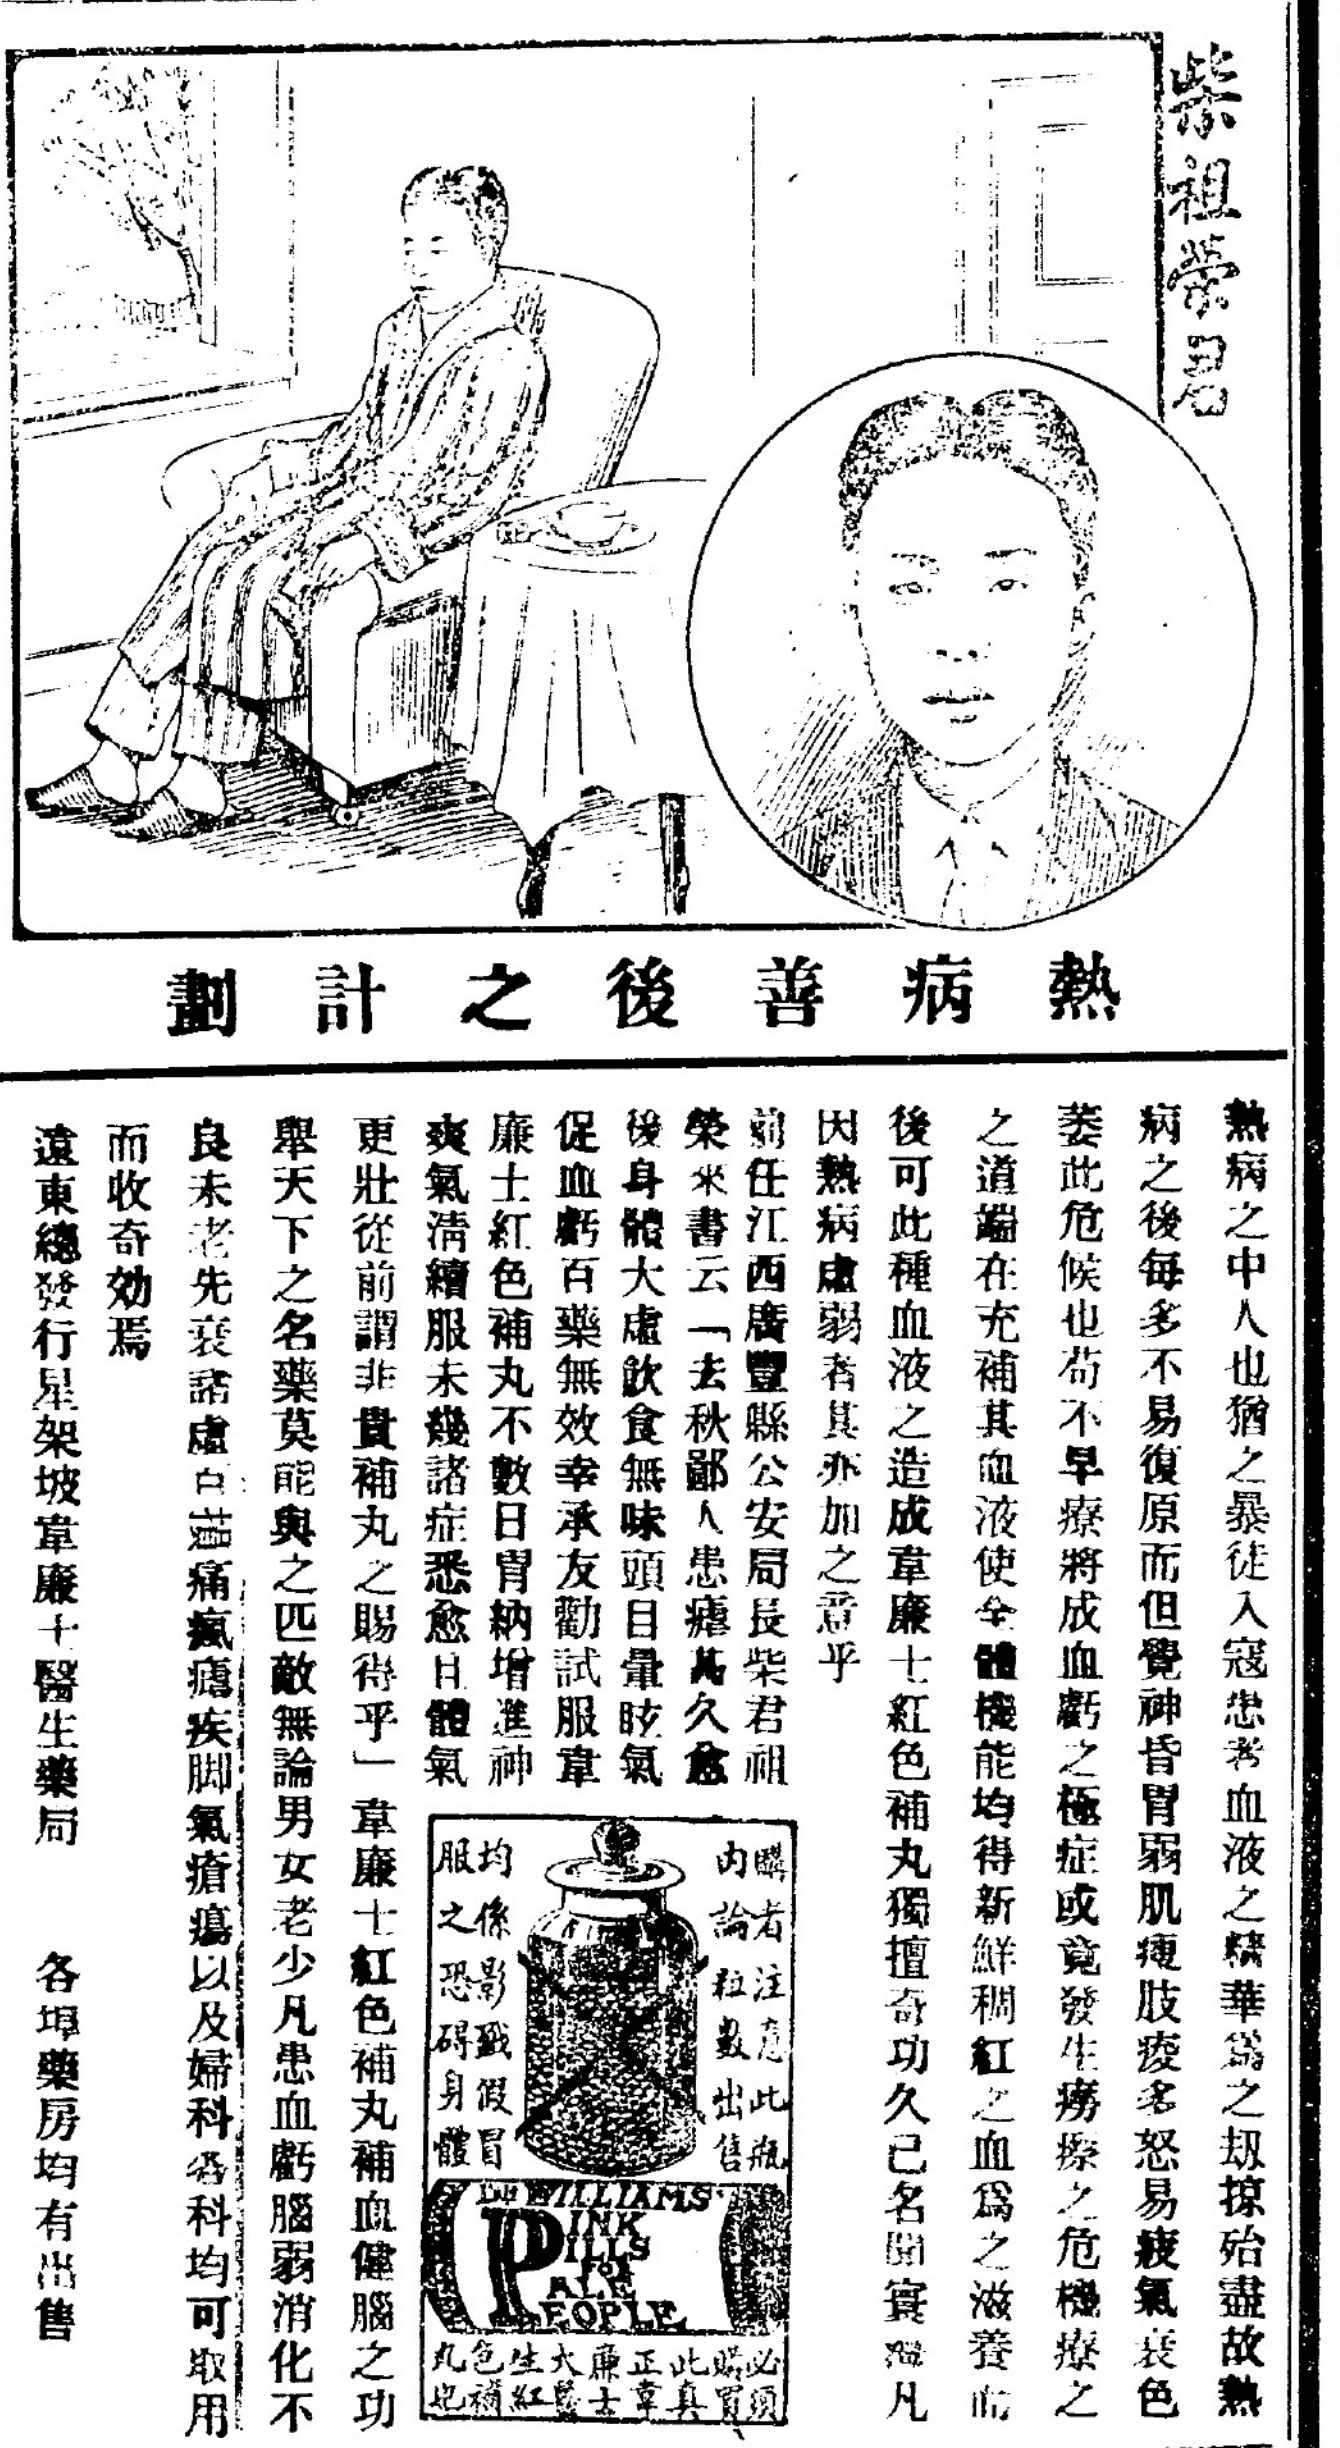 柴祖榮君
熱病善後之計劃
熱病之中人也猶之暴徒入寇患者血液之精華爲之刼掠殆盡故熱
病之後每多不易復原而但覺神昏胃弱肌瘦肢痠多怒易疲氣衰色
萎此危候也苟不早療將成血虧之極症或竟發生癆瘵之危機療之
之道端在充補其血液使全體機能均得新鮮稠紅之血爲之滋養而
後可此種血液之造成韋廉士紅色補丸獨擅奇功久已名聞寰 凡
因熱病虛弱者其亦加之意乎
前任江西廣豐縣公安局長柴君祖
榮來書云「去秋鄙人患瘧甚久愈
後身體大虛飲食無味頭目暈眩氣
促血虧百藥無效幸承友勸試服韋
廉士紅色補丸不數日胃納增進神
爽氣清續服未幾諸症悉愈且體氣
更壯從前謂非貴補丸之賜得乎」韋廉士紅色補丸補血健腦之功
舉天下之名藥莫能與之匹敵無論男女老少凡患血虧腦弱消化不
良未老先衰諸虛百損 痛瘋瘧疾脚氣瘡瘍以及婦科各科均可取用
而收奇効焉
遠東總發行星架坡韋廉士醫生藥局 各埠藥房均有出售
購者注意此瓶
內論粒數出售
均係影戤假冒
服之恐碍身體
DR WILLIAMS
PINK
PILLS
FOR
PALE
PEOPLE
必須
購買
此真
正韋
廉士
大醫
生紅
色補
丸也